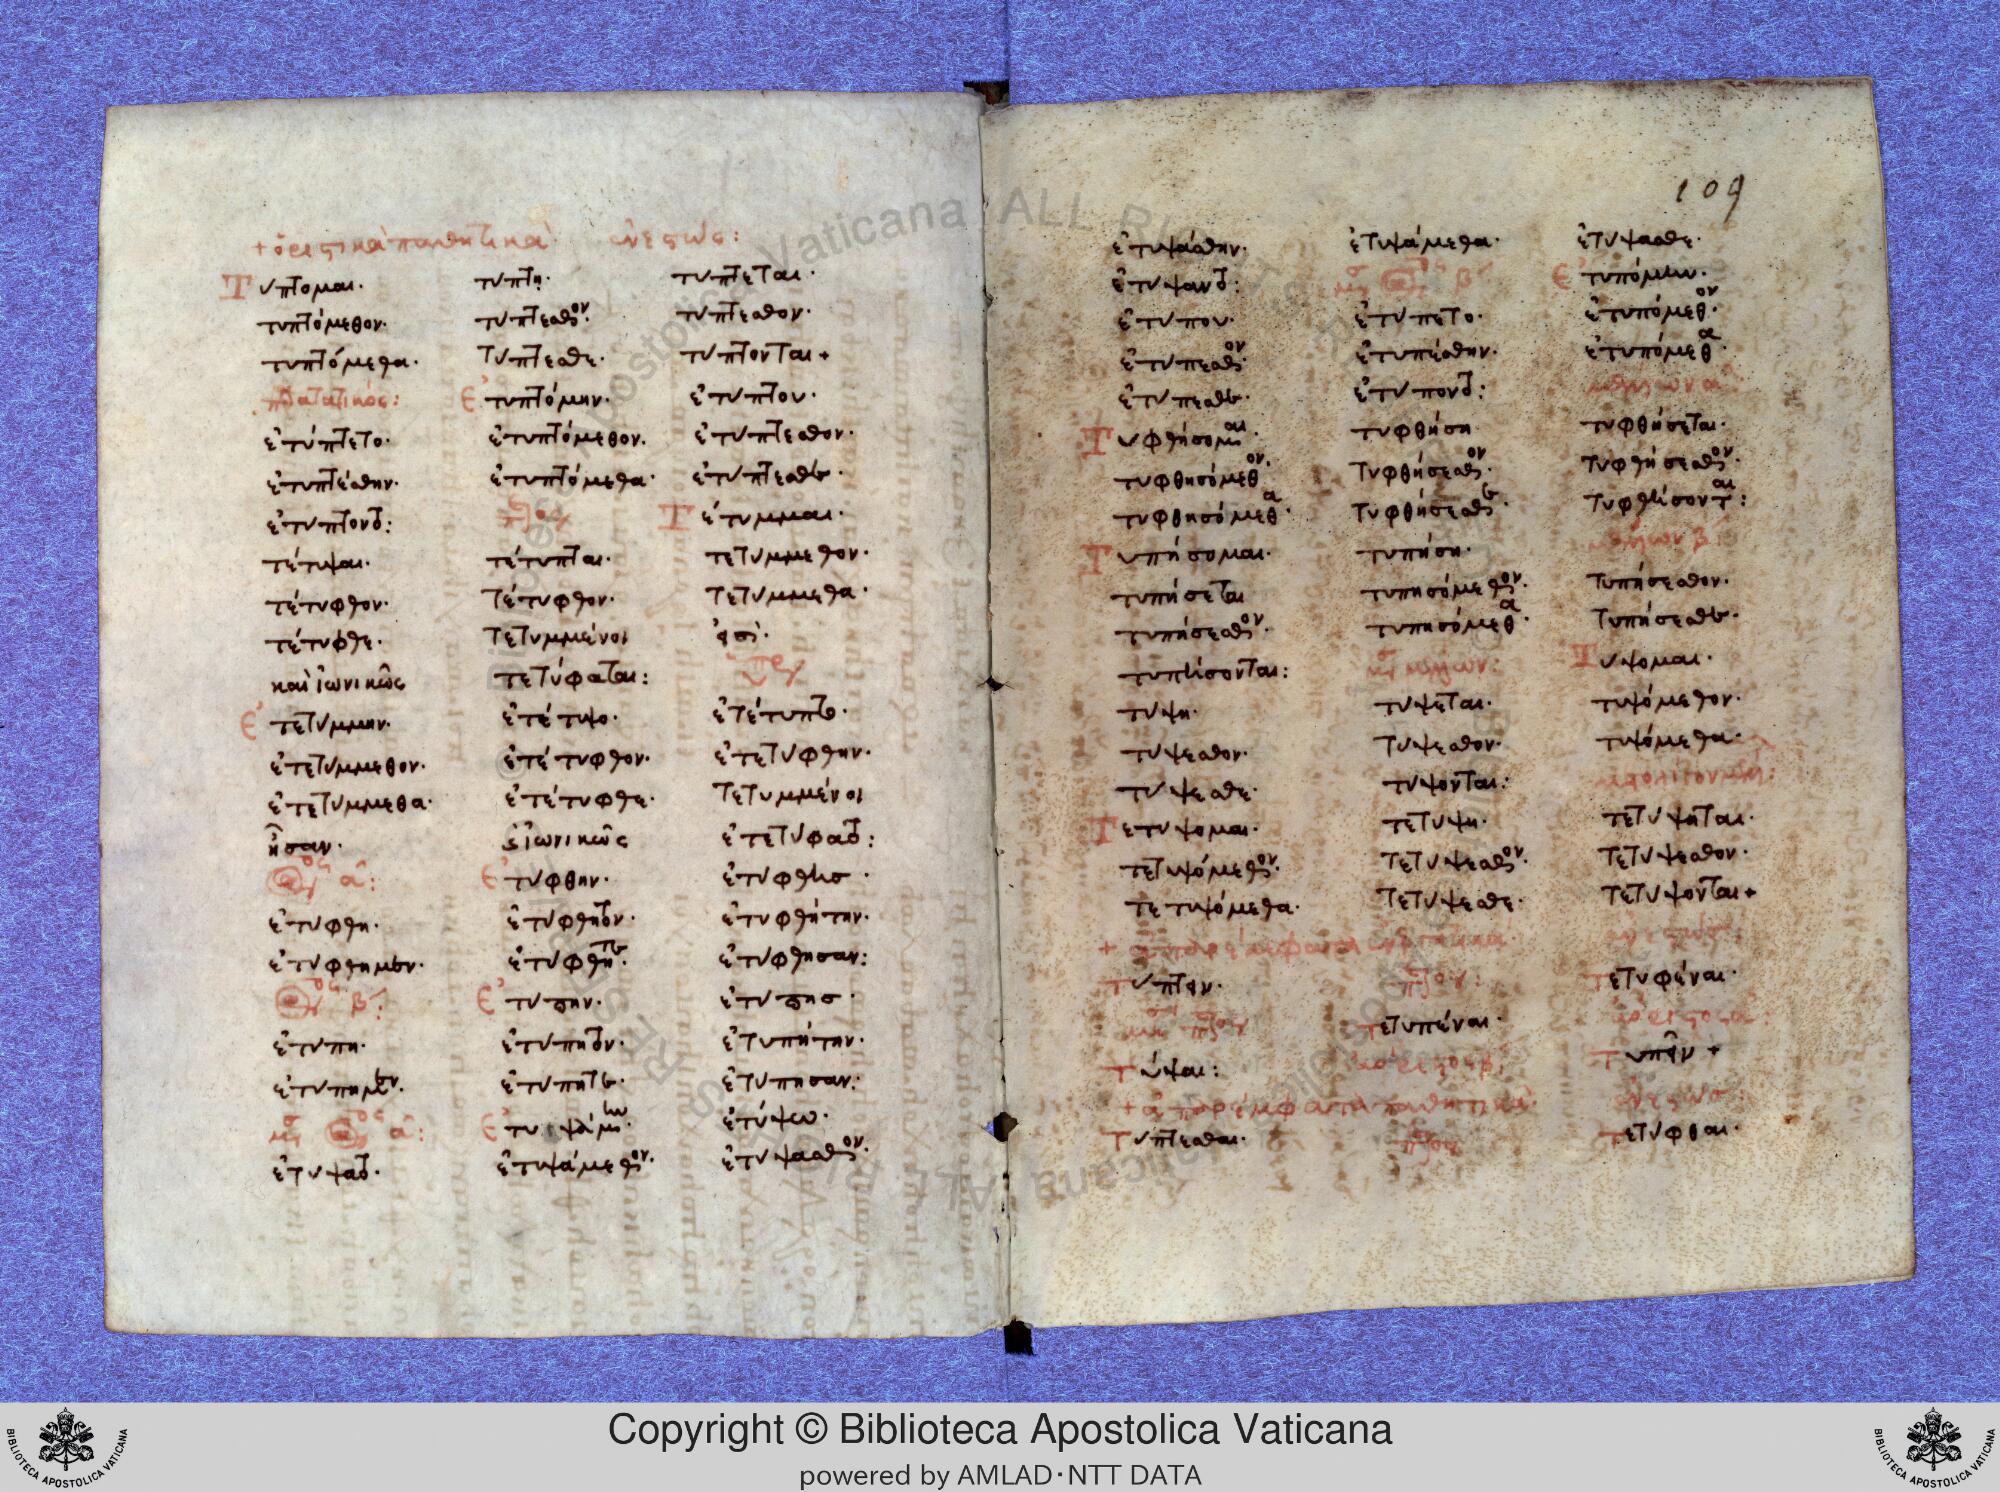 + ὁριστικὰ παθητικά· ἐνεστώς:
Τύπτομαι· τύπτῃ· τύπτεται·
τυπτόμεθον· τύπτεσθον· τύπτεσθον·
τυπτόμεθα· τύπτεσθε· τύπτονται +
παρατατικός: ἐτυπτόμην· ἐτύπτου·
ἐτύπτετο· ἐτυπτόμεθον· ἐτύπτεσθον·
ἐτυπτέσθην· ἐτυπτόμεθα· ἐτύπτεσθε·
ἐτύπτοντο: Τέτυμμαι·
τέτυψαι· τέτυπται· τετύμμεθον·
τέτυφθον· τέτυφθον· τετύμμεθα·
τέτυφθε· τετυμμένοι εἰσί·
καὶ ἰωνικῶς τετύφαται:
ἐτετύμμην· ἐτέτυψο· ἐτέτυπτο·
ἐτετύμμεθον· ἐτέτυφθον· ἐτετύφθην·
ἐτετύμμεθα· ἐτέτυφθε· τετυμμένοι
ἦσαν· ἰωνικῶς ἐτετύφατο:
α: ἐτύφθην· ἐτύφθης·
ἐτύφθη· ἐτύφθητον· ἐτυφθήτην·
ἐτύφθημεν· ἐτύφθητε· ἐτύφθησαν:
β: ἐτύπην· ἐτύπης·
ἐτύπη· ἐτύπητον· ἐτυπήτην·
ἐτύπημεν· ἐτύπητε· ἐτύπησαν:
α: ἐτυψάμην· ἐτύψω·
ἐτύψατο· ἐτυψάμεθον· ἐτύψασθον·
109
ἐτυψάσθην· ἐτυψάμεθα· ἐτύψασθε·
ἐτύψαντο: β ἐτυπόμην·
ἐτύπου· ἐτύπετο· ἐτυπόμεθον·
ἐτύπεσθον· ἐτυπέσθην· ἐτυπόμεθα·
ἐτύπεσθε· ἐτύποντο:
Τυφθήσομαι· τυφθήσῃ τυφθήσεται·
τυφθησόμεθον· τυφθήσεσθον· τυφθήσεσθον·
τυφθησόμεθα· τυφθήσεσθε· τυφθήσονται:
Τυπήσομαι· τυπήσῃ· β
τυπήσεται τυπησόμεθον· τυπήσεσθον·
τυπήσεσθον· τυπησόμεθα· τυπήσεσθε·
τυπήσονται: Τύψομαι·
τύψῃ· τύψεται· τυψόμεθον·
τύψεσθον· τύψεσθον· τυψόμεθα·
τύψεσθε· τύψονται:
Τετύψομαι· τετύψῃ· τετύψεται·
τετυψόμεθον· τετύψεσθον· τετύψεσθον·
τετυψόμεθα· τετύψεσθε· τετύψονται +
+ ἀπαρέμφατα ἐνεστώς·
τύπτειν· τετυφέναι·
τετυπέναι· ἀόριστος α:
τύψαι: ἀόριστος β: τυπεῖν +
+ ἀπαρέμφατα παθητικά· ἐνεστώς·
τύπτεσθαι· τετύφθαι·
Copyright © Biblioteca Apostolica Vaticana
powered by AMLAD·NTT DATA
BIBLIOTECA APOSTOLICA VATICANA
BIBLIOTECA APOSTOLICA VATICANA